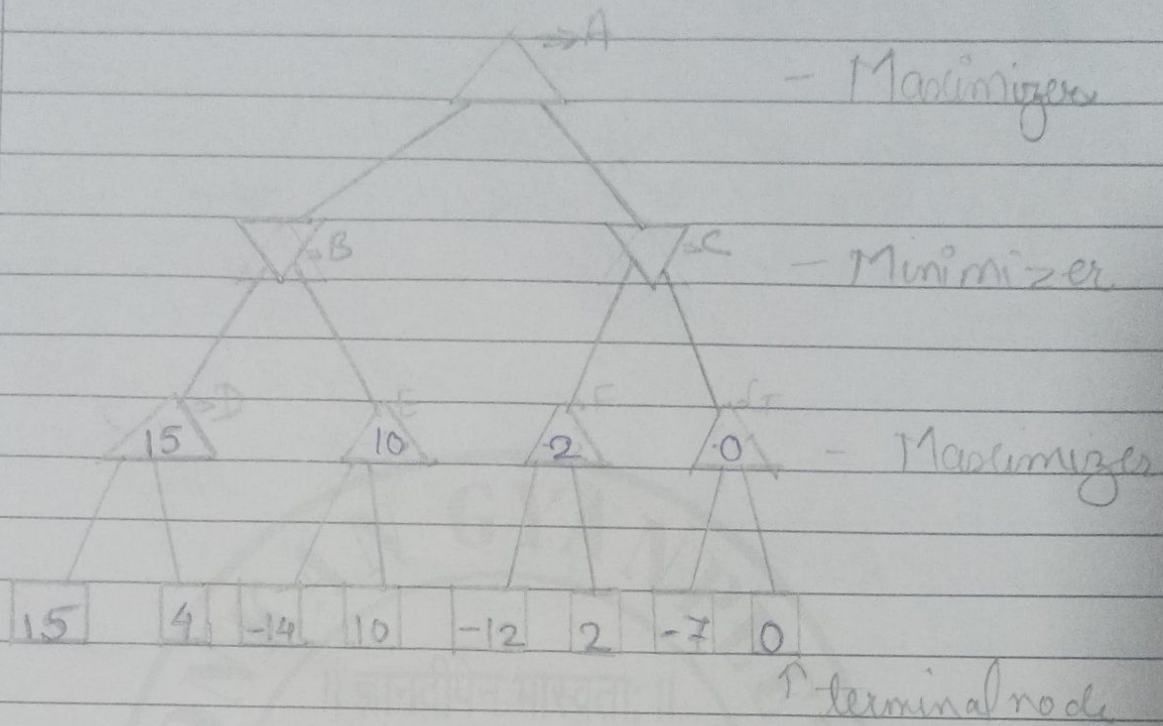 A
- Maximizer
B
C
- Minimizer
D
E
F
G
15
10
2
0
- Maximizer
15
4
-14
10
-12
2
-7
0
↑ terminal node